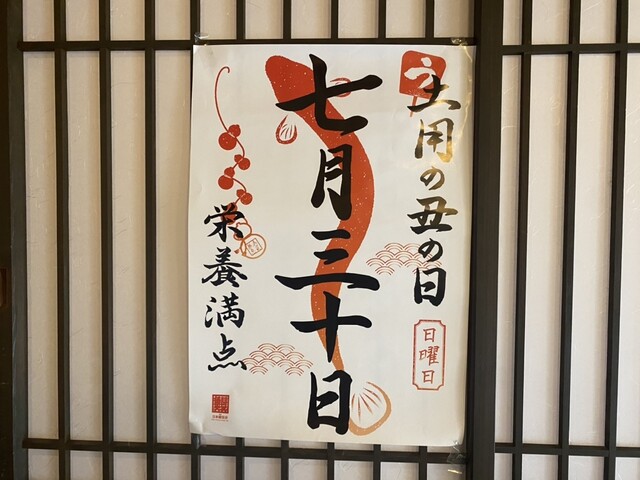 土用の丑の日
日曜日
七月三十日
栄養満点